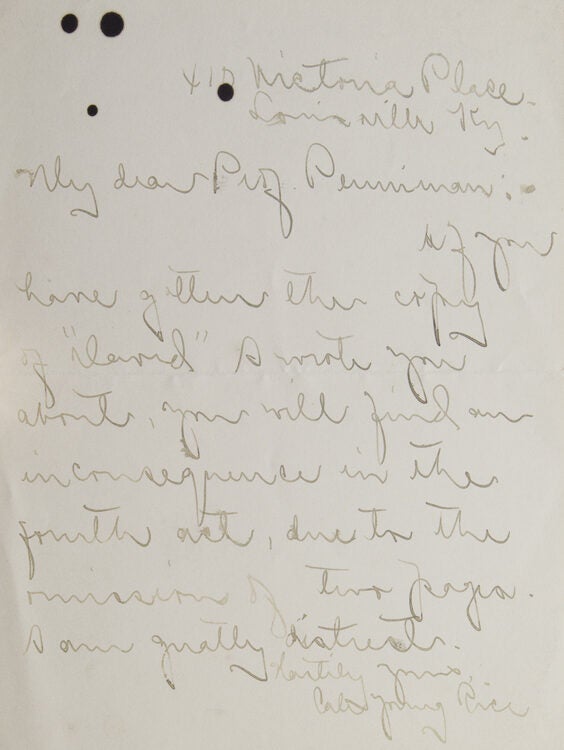 Victoria Place.
Louisville Ky.
My dear Prof. Penniman:
If you
have gotten the copy
of "David" I wrote you
about, you will find an
inconsequence in the
fourth act, due to the
omission of two pages.
I am greatly distrest.
Hastily yours,
Cale Young Rice